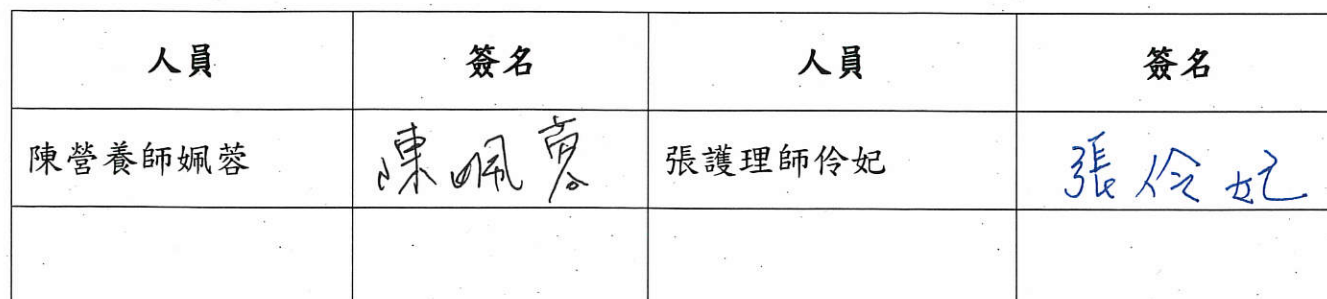 人員 簽名 人員 簽名
陳營養師姵蓉 陳姵蓉 張護理師伶妃 張伶妃